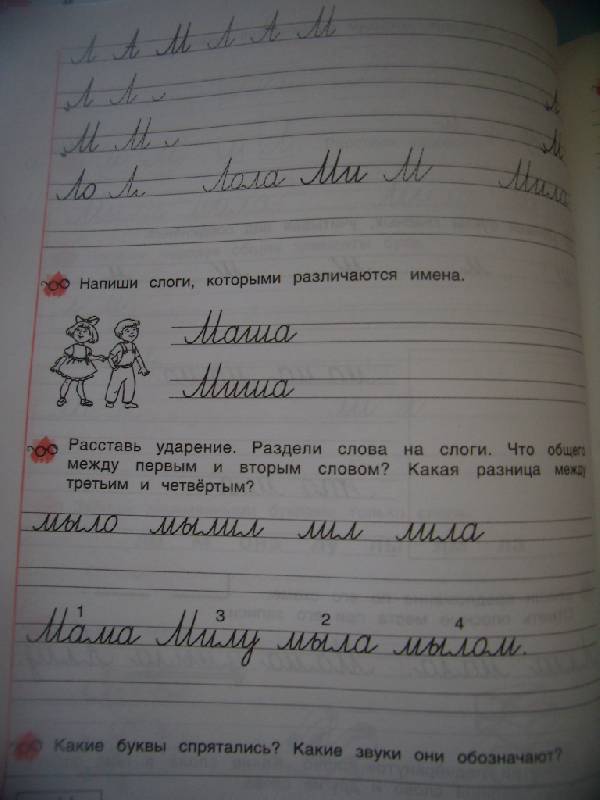 Л Л М Л Л М
Л Л Л
М М М
Ло Л Лола Ми М Мила
Напиши слоги, которыми различаются имена.
Маша
Миша
Расставь ударение. Раздели слова на слоги. Что общего
между первым и вторым словом? Какая разница между
третьим и четвёртым?
мыло мылил лил лила
1 3 2 4
Мама Милу мыла мылом.
Какие буквы спрятались? Какие звуки они обозначают?